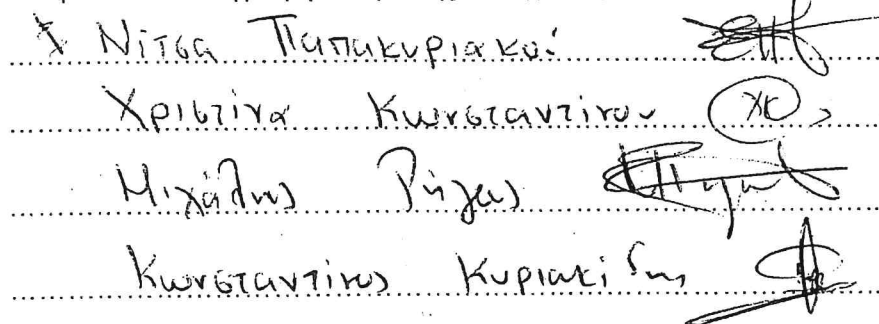 Νίτσα Παπακυριακού
Χριστίνα Κωνσταντίνου ΧΚ
Μιχάλης Ρήγας
Κωνσταντίνος Κυριακίδης